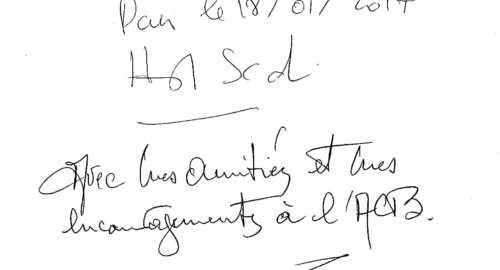 Paris le 18/01/2017
Avec mes amitiés et mes
encouragements à l'ACB.